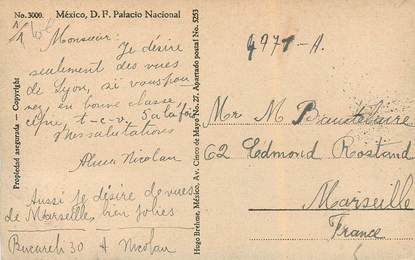 No. 3000. México, D. F. Palacio Nacional
Monsieur:
Je désire
seulement des vues
de Lyon, si vous pou-
vez, en bonne classe,
t-c-v.
Mes salutations
Nicolau
Aussi je désire de vues
de Marseille, bien jolies
Bucareli 30 A Nicolau
Propiedad asegurada — Copyright
Hugo Brehme, México, Av. Cinco de Mayo No. 27, Apartado postal No. 5253
4971-A.
Mr M Baudelaire
62 Edmond Rostand
Marseille
France